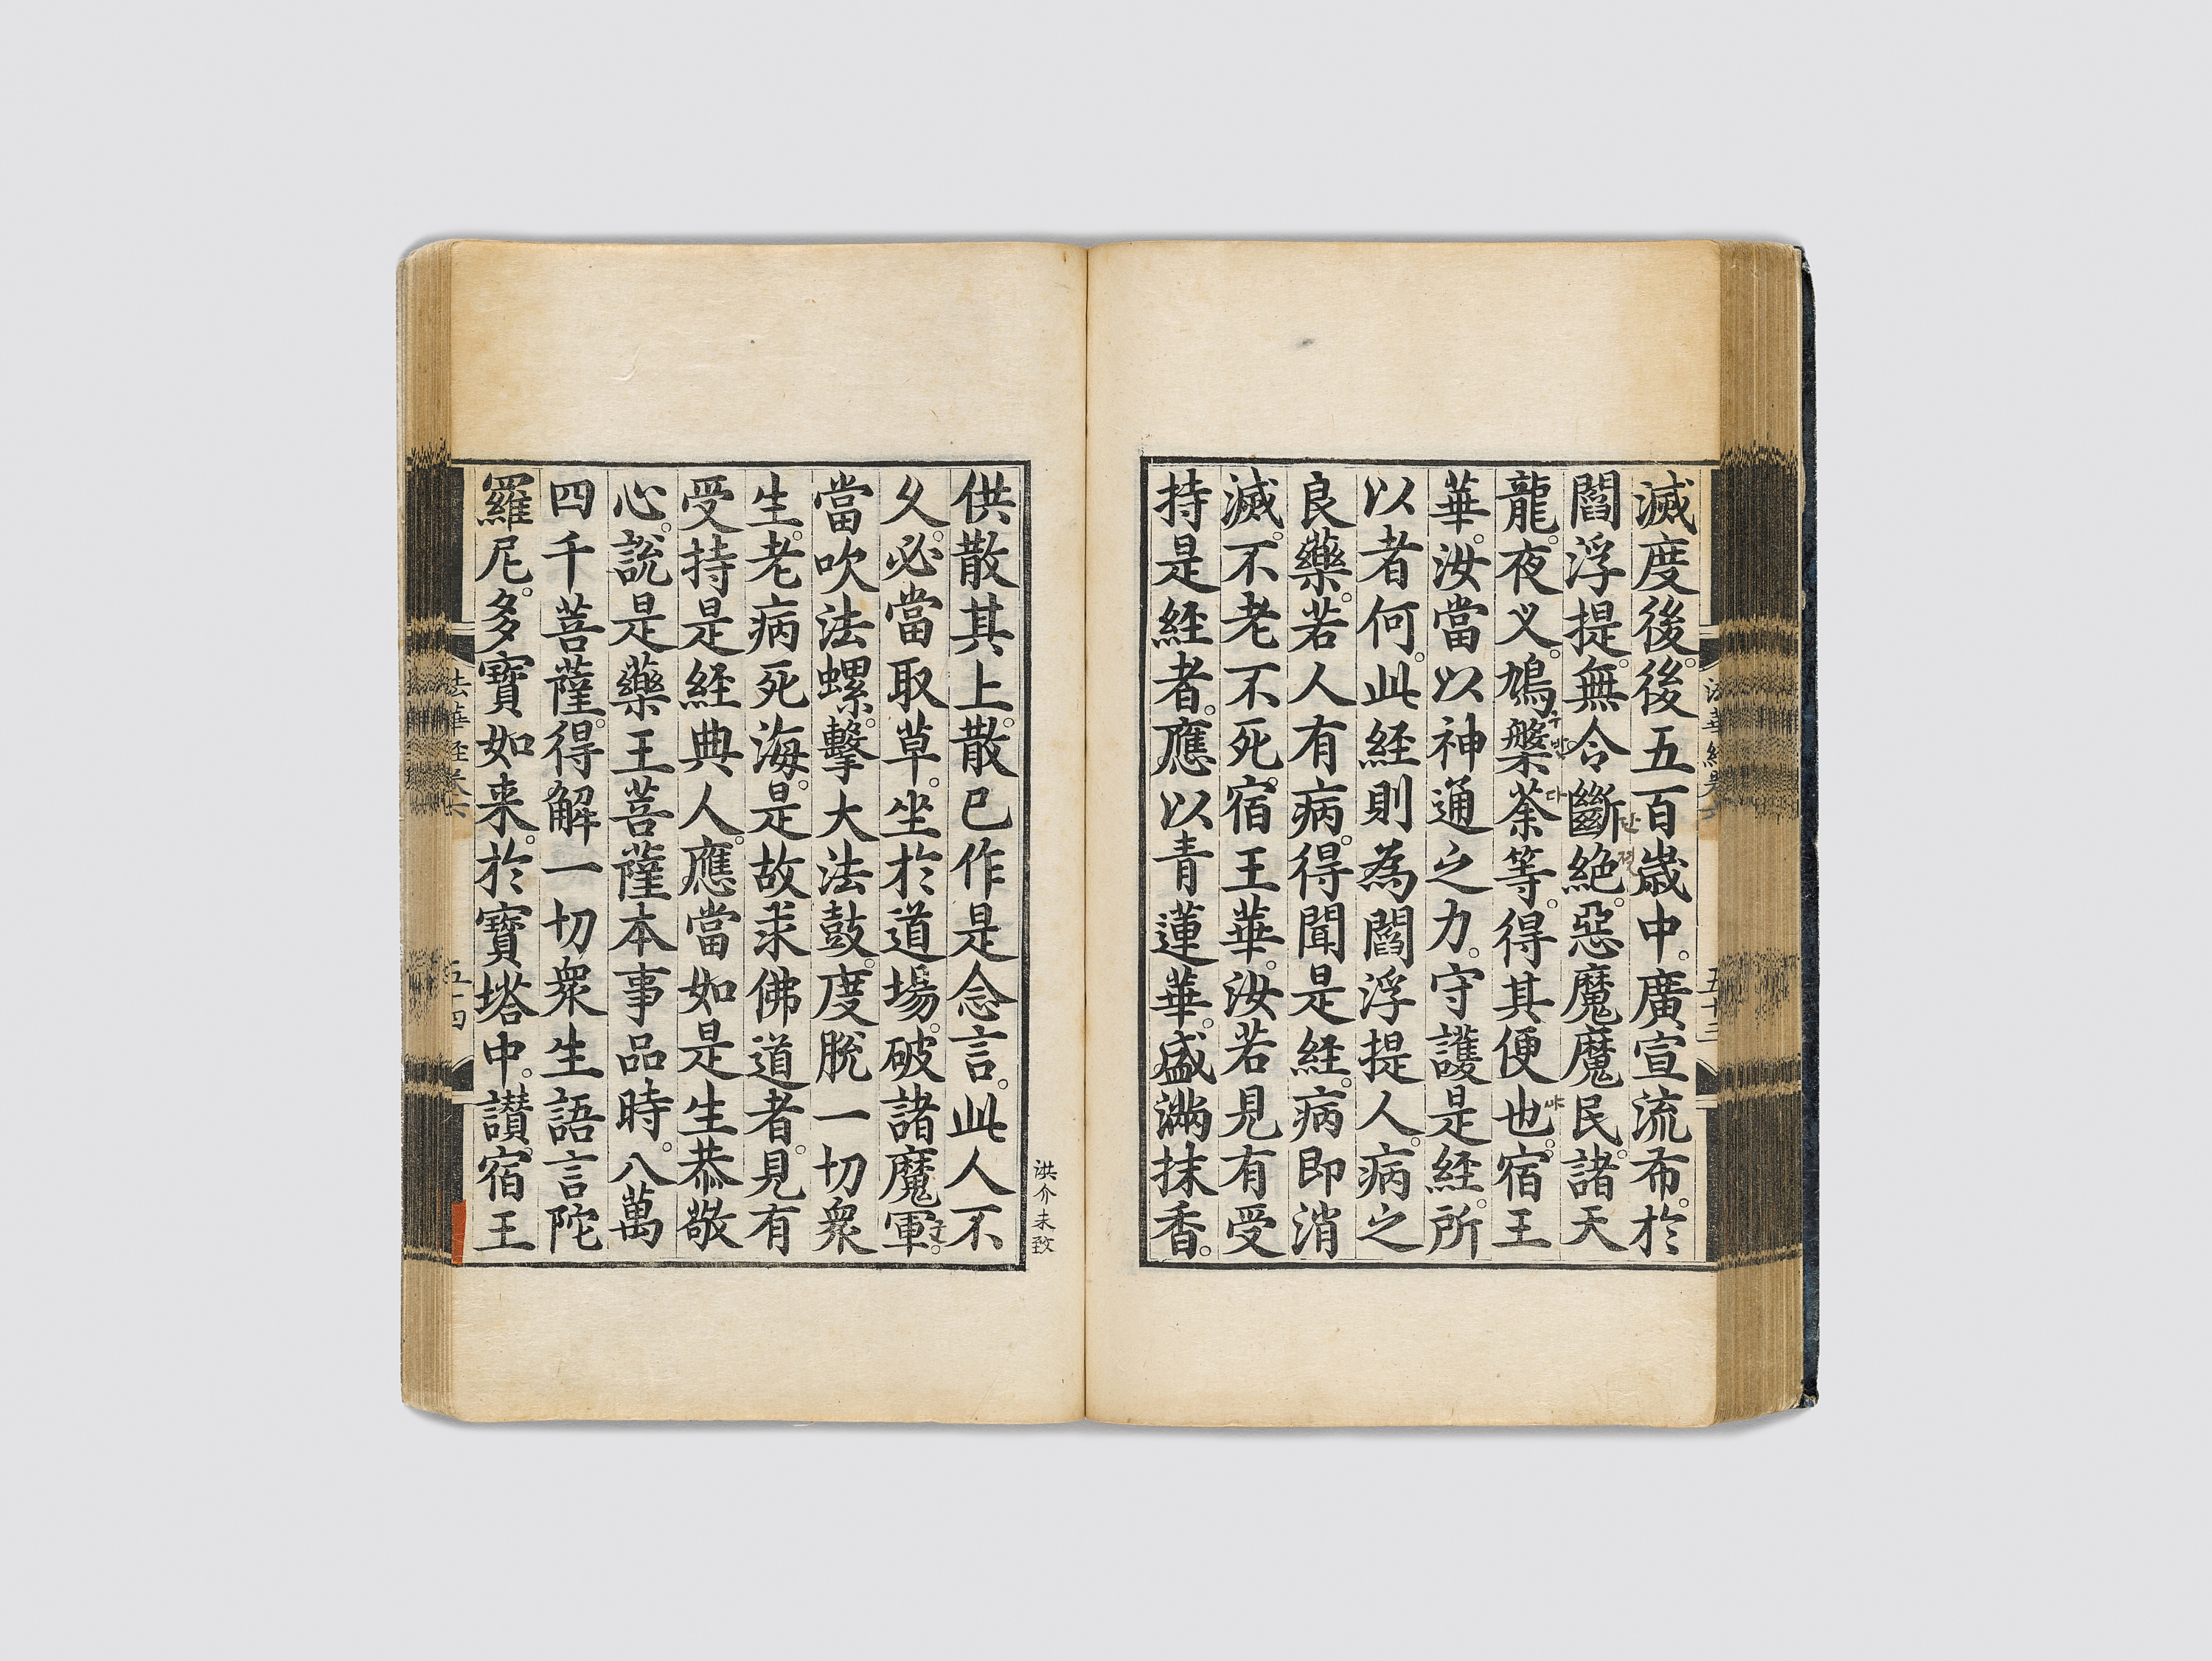 滅度後。後五百歲中。廣宣流布。於
閻浮提。無令斷絶。惡魔魔民。諸天
단절
龍。夜义。鳩槃荼等。得其便也。宿王
구반다
華。汝當以神通之力。守護是経。所
以者何。此経則為閻浮提人。病之
良藥。若人有病。得聞是経。病即消
滅。不老不死。宿王華。汝若見有受
持是経者。應以青蓮華。盛滿抹香。
法華経卷六
五十三
供散其上。散已作是念言。此人不
久。必當取草。坐於道場。破諸魔軍。
군
當吹法螺。擊大法鼓。度脫一切衆
生。老病死海。是故求佛道者。見有
受持是経典人。應當如是生恭敬
心。說是藥王菩薩本事品時。八萬
四千菩薩。得解一切衆生語言陀
羅尼。多寶如来。於寶塔中。讃宿王
洪介未致
法華経卷六
五十四